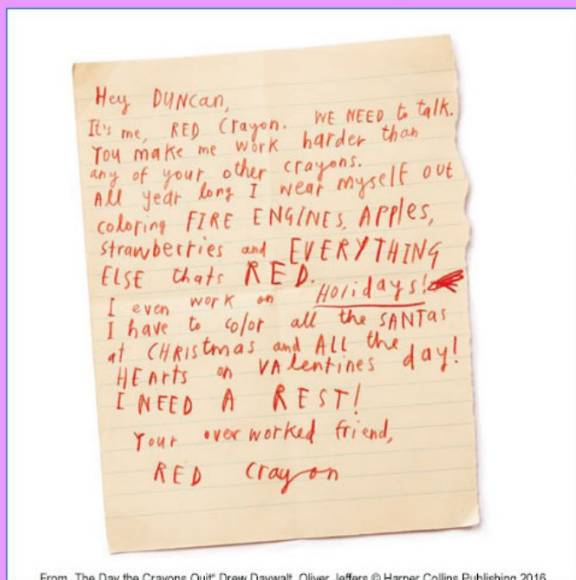 Hey DUNCan,
It's me, RED Crayon. WE NEED to talk.
You make me work harder than
any of your other crayons.
All year long I wear myself out
coloring FIRE ENGINES, APPles,
strawberries and EVERYTHING
ELSE thats RED.
I even work on Holidays!
I have to color all the SANTas
at CHRIStmas and ALL the
HEArts on VAlentines day!
I NEED A REST!
Your overworked friend,
RED Crayon
From „The Day the Crayons Quit“ Drew Daywalt, Oliver Jeffers © Harper Collins Publishing 2016